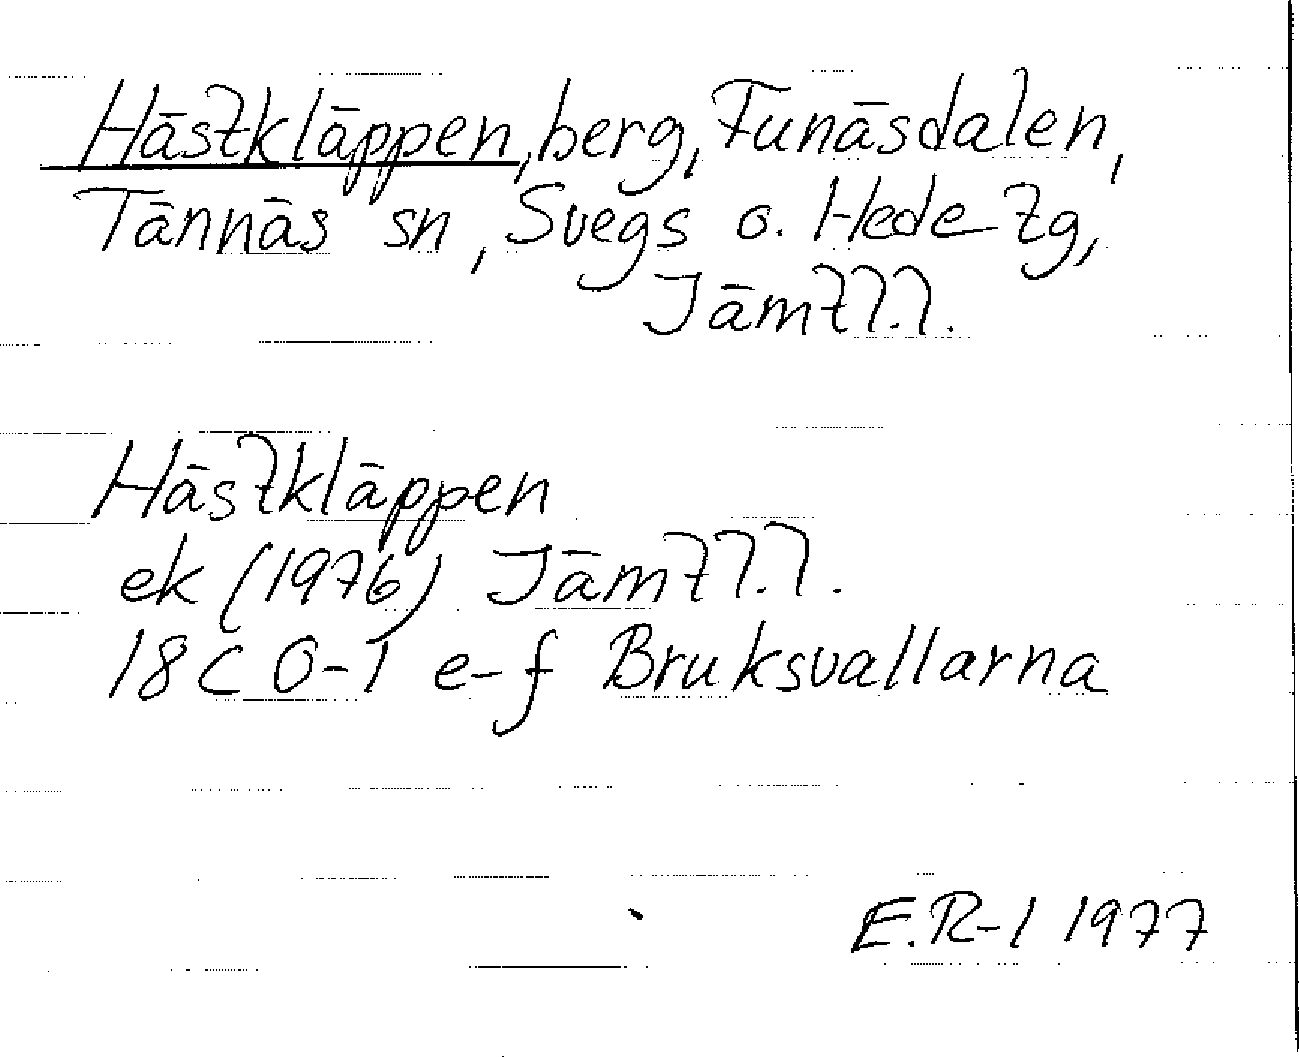 Hästkläppen, berg, Funäsdalen,
Tännäs sn, Svegs o. Hede tg,
Jämtl.l.
Hästkläppen
ek (1976) Jämtl.l.
18C 0-1 e-f Bruksvallarna
E.R-l 1977